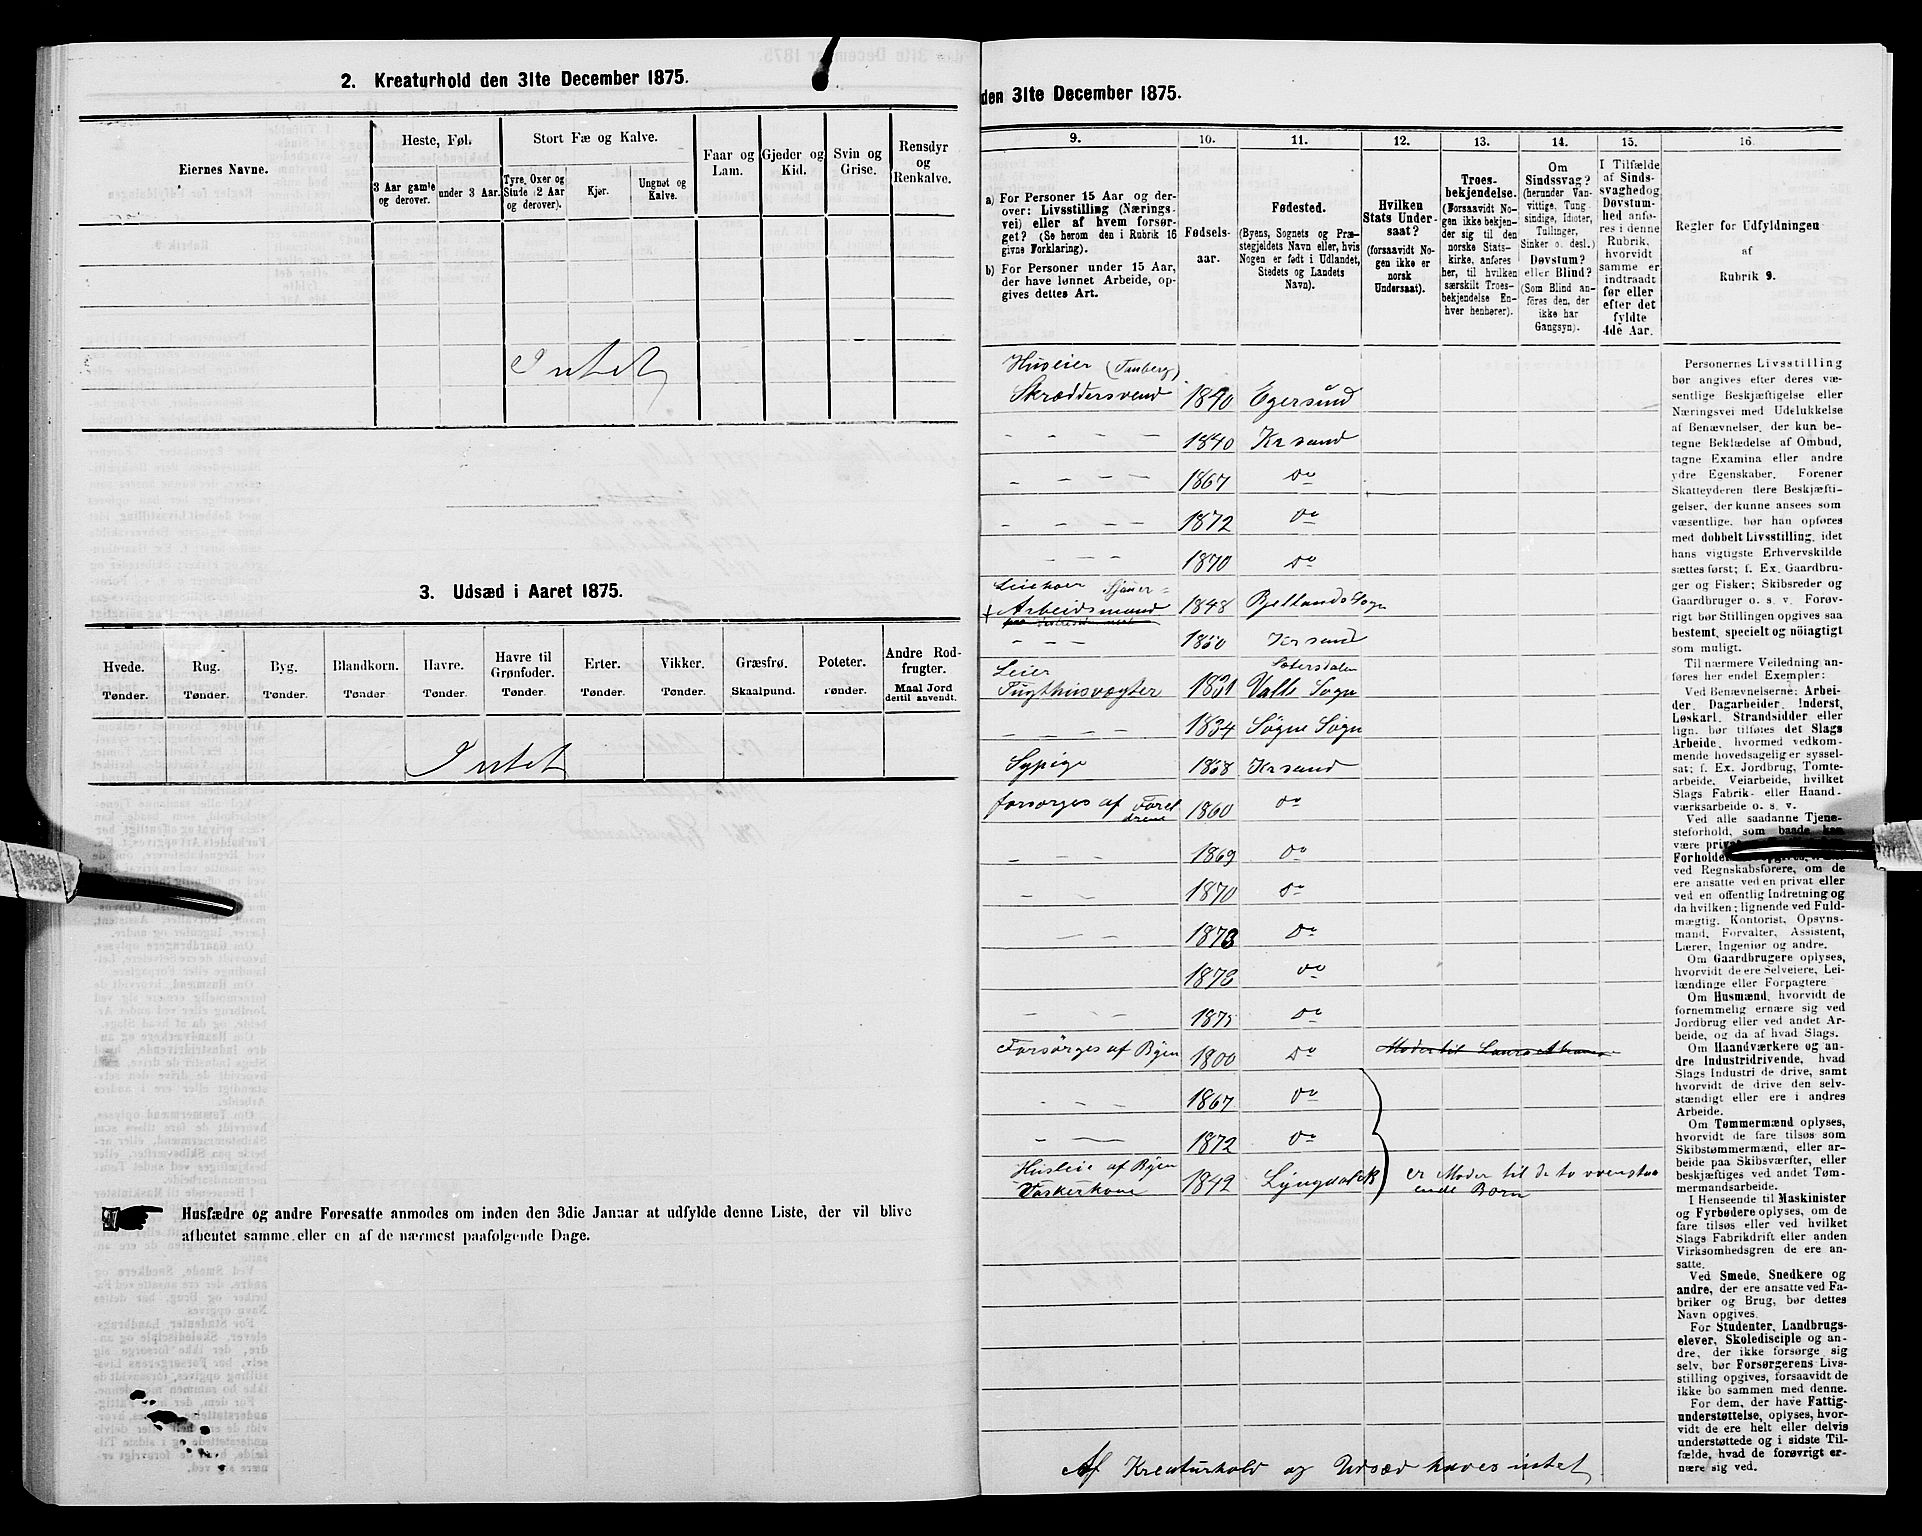 2. Kreaturhold den 31te December 1875.
Eiernes Navne.
Heste, Føl.
3 Aar gamle og derover.
under 3 Aar.
Stort Fæ og Kalve.
Tyre, Oxer og Stude (2 Aar og derover).
Kjør.
Ungnøt og Kalve.
Faar og Lam.
Gjeder og Kid.
Svin og Grise.
Rensdyr og Renkalve.
Intet
3. Udsæd i Aaret 1875.
Hvede. Tønder.
Rug. Tønder.
Byg. Tønder.
Blandkorn. Tønder.
Havre. Tønder.
Havre til Grønfoder. Tønder.
Erter. Tønder.
Vikker. Tønder.
Græsfrø. Skaalpund.
Poteter. Tønder.
Andre Rodfrugter. Maal Jord dertil anvendt.
Intet
Husfædre og andre Foresatte anmodes om inden den 3die Januar at udfylde denne Liste, der vil blive
afhentet samme eller en af de nærmest paafølgende Dage.
den 31te December 1875.
9.
a) For Personer 15 Aar og derover: Livsstilling (Næringsvei) eller af hvem forsørget? (Se herom den i Rubrik 16 givne Forklaring).
b) For Personer under 15 Aar, der have lønnet Arbeide, opgives dettes Art.
10.
Fødselsaar.
11.
Fødested.
(Byens, Sognets og Præstegjeldets Navn eller, hvis Nogen er født i Udlandet, Stedets og Landets Navn).
12.
Hvilken Stats Undersaat?
(forsaavidt Nogen ikke er norsk Undersaat).
13.
Troesbekjendelse.
(Forsaavidt Nogen ikke bekjender sig til den norske Statskirke, anføres her, til hvilken særskilt Troesbekjendelse Enhver henhører).
14.
Om Sindssvag? (herunder Vanvittige, Tungsindige, Idioter, Tullinger, Sinker o. desl.) Døvstum? eller Blind? (Som Blind anføres den, der ikke har Gangsyn).
15.
I Tilfælde af Sindssvaghed og Døvstumhed anføres i denne Rubrik, hvorvidt samme er indtraadt før eller efter det fyldte 4de Aar.
16
Regler for Udfyldningen af Rubrik 9.
Husleier (Tanberg)
Skræddersvend 1840 Egersund
1840 Krsand
1867 Do
1872 Do
1870 Do
Arbeidsmand 1848 Bjellands Sogn
1850 Krsand
Leier Sætersdalen
Tugthusvægter 1831 Valle Sogn
1834 Søgne Sogn
Sypige 1858 Krsand
forsørges af Forældrene 1860 Do
1869 Do
1870 Do
1873 Do
1872 Do
1875 Do
Forsørges af Byen 1800 Do
1867 Do
1872 Do
Husleie af Byen
Vaskerkone 1842 Lyngdal er Moder til de to ovenstaaende Børn
Af Kreaturhold og Udsæd haves intet
Personernes Livsstilling
bør angives efter deres væ-
sentlige Beskjæftigelse eller
Næringsvei med Udelukkelse
af Benævnelser, der kun be-
tegne Beklædelse af Ombud,
tagne Examina eller andre
ydre Egenskaber. Forener
Skatteyderen flere Beskjæfti-
gelser, der kunne ansees som
væsentlige, bør han opføres
med dobbelt Livsstilling, idet
hans vigtigste Erhvervskilde
sættes først; f. Ex. Gaardbru-
ger og Fisker; Skibsreder og
Gaardbruger o. s. v. Forøv-
rigt bør Stillingen opgives saa
bestemt, specielt og nöiagtigt
som muligt.
Til nærmere Veiledning an-
føres her endel Exempler:
Ved Benævnelserne: Arbei-
der, Dagarbeider, Inderst,
Løskarl, Strandsidder eller
lign. bør tilføies det Slags
Arbeide, hvormed vedkom-
mende hovedsagelig er syssel-
sat; f. Ex. Jordbrug, Tomte-
arbeide, Veiarbeide, hvilket
Slags Fabrik- eller Haand-
værksarbeide o. s. v.
Ved alle saadanne Tjene-
steforhold, som baade kan
være
ved Regnskabsførere, om de
ere ansatte ved en privat eller
ved en offentlig Indretning og
da hvilken; lignende ved Fuld-
mægtig, Kontorist, Opsyns-
mand, Forvalter, Assistent,
Lærer, Ingeniør og andre.
Om Gaardbrugere oplyses,
hvorvidt de ere Selveiere, Lei-
lændinge eller Forpagtere
Om Husmænd, hvorvidt de
fornemmelig ernære sig ved
Jordbrug eller ved andet Ar-
beide, og da af hvad Slags.
Om Haandværkere og an-
dre Industridrivende, hvad
Slags Industri de drive, samt
hvorvidt de drive den selv-
stændigt eller ere i andres
Arbeide.
Om Tømmermænd oplyses,
hvorvidt de fare tilsøs som
Skibstømmermænd, eller ar-
beide paa Skibsværfter, eller
beskjæftiges ved andet Tøm-
mermandsarbeide.
I Henseende til Maskinister
og Fyrbødere oplyses, om de
fare tilsøs eller ved hvilket
Slags Fabrikdrift eller anden
Virksomhedsgren de ere an-
satte.
Ved Smede, Snedkere og
andre, der ere ansatte ved Fa-
briker og Brug, bør dettes
Navn opgives.
For Studenter, Landbrugs-
elever, Skoledisciple og an-
dre, der ikke forsørge sig
selv, bør Forsørgerens Livs-
stilling opgives, forsaavidt de
ikke bo sammen med denne.
For dem, der have Fattig-
understøttelse, oplyses, hvor-
vidt de ere helt eller delvis
understøttede og i sidste Til-
fælde, hvad de forøvrigt er-
nære sig ved.